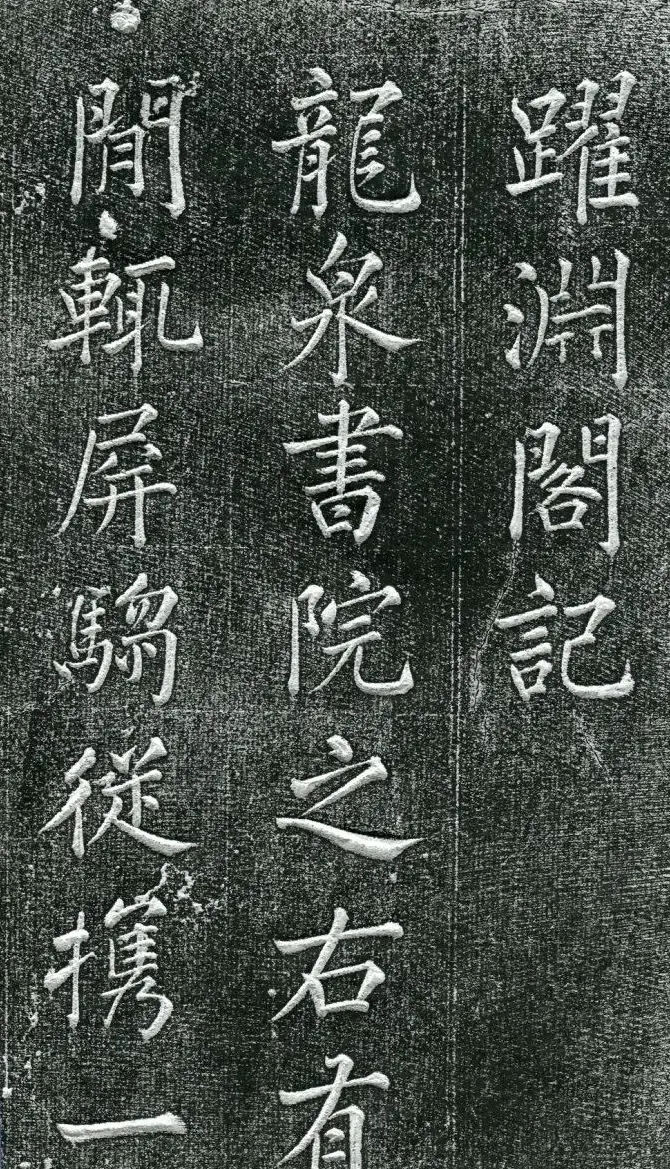 躍淵閣記
龍泉書院之右有
閒輒屏騶從攜一